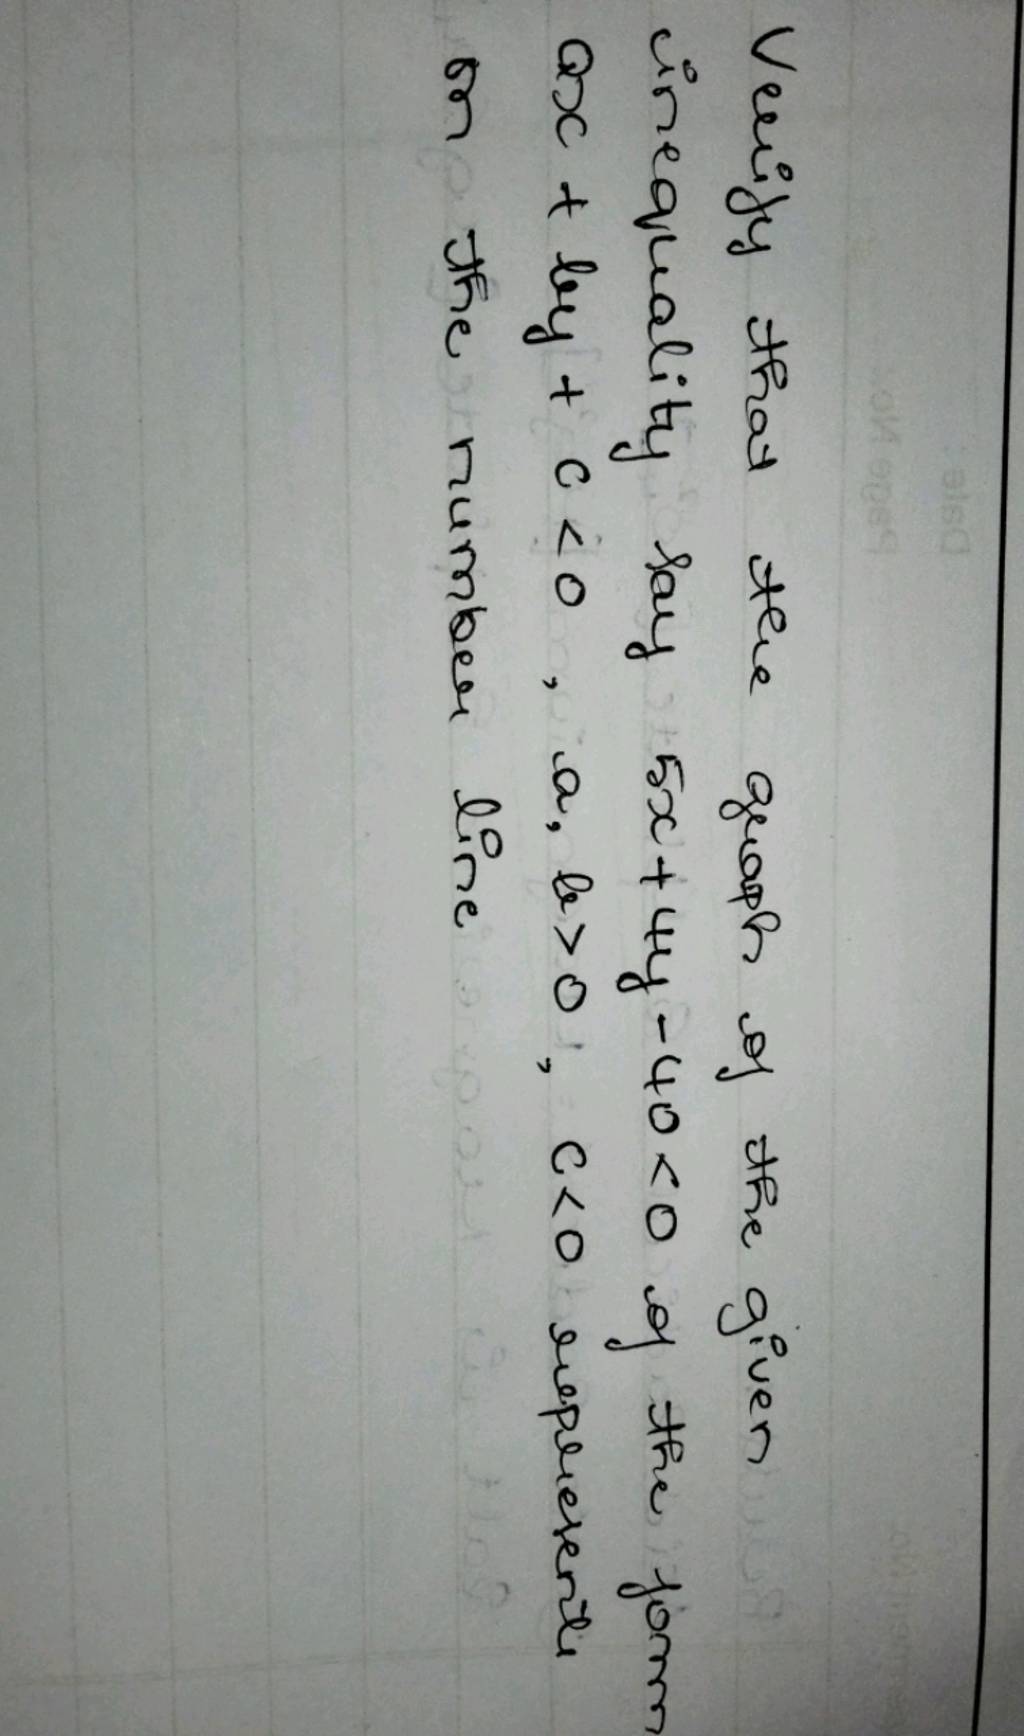 Verify that the graph of the given
inequality say 5x + 4y - 40 < 0 of the form
ax + by + c < 0, a, b > 0, c < 0 represent
on the number line
Date:
Page No